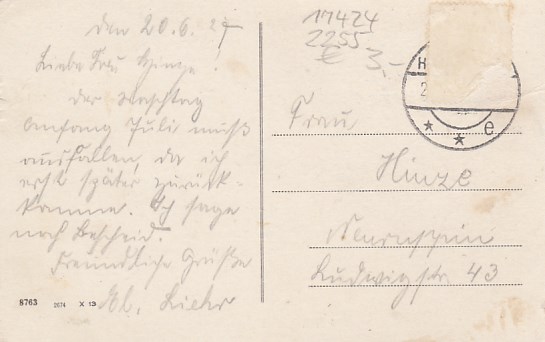 den 20.6.27
Liebe Frau Hinze!
Der Waschtag
Anfang Juli muß
ausfallen, da ich
erst später zurück-
komme. Ich sage
noch Bescheid.
Freundliche Grüße
8763 2674 X 13
17424
2255
€ 3,-
H
2
* * e
Frau
Hinze
Neuruppin
Ludwigstr 43